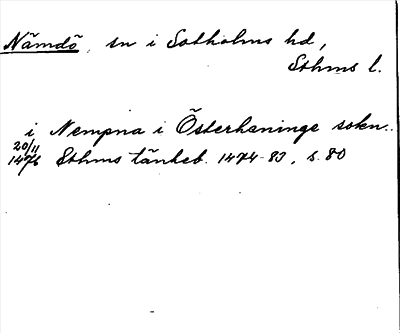 Nämdö, sn i Sotholms hd,
Sthms l.
i Nempna i Österhaninge sokn..
20/11 1476 Sthms tänkeb. 1474-83, s. 80